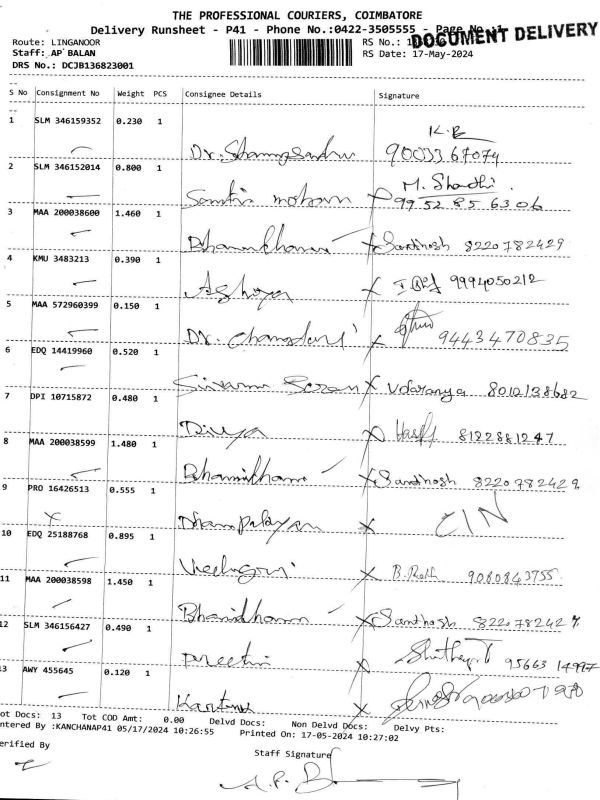 THE PROFESSIONAL COURIERS, COIMBATORE
Delivery Runsheet - P41 - Phone No.:0422-3505555 - Page No.:1
DOCUMENT DELIVERY
Route: LINGANOOR RS No.:
Staff: AP BALAN RS Date: 17-May-2024
DRS No.: DCJB136823001
S No Consignment No Weight PCS Consignee Details Signature
1 SLM 346159352 0.230 1
K.R
90033 67074
2 SLM 346152014 0.800 1
M. Shadhi.
mohan 99 52 85 6306
3 MAA 200038600 1.460 1
Santhosh 8220782429
4 KMU 3483213 0.390 1
9994050212
5 MAA 572960399 0.150 1
Dr. 9443470835
6 EDQ 14419960 0.520 1
Udaranya 8012138682
7 DPI 10715872 0.480 1
Divya 8122881247
8 MAA 200038599 1.480 1
Santhosh 8220782429
9 PRO 16426513 0.555 1
x
x CIN
10 EDQ 25188768 0.895 1
9080843755
11 MAA 200038598 1.450 1
Santhosh 822078242
12 SLM 346156427 0.490 1
Preethi 95663 14997
13 AWY 455645 0.120 1
ot Docs: 13 Tot COD Amt: 0.00 Delvd Docs: Non Delvd Docs: Delvy Pts:
ntered By :KANCHANAP41 05/17/2024 10:26:55 Printed On: 17-05-2024 10:27:02
erified By Staff Signature
A.P.B